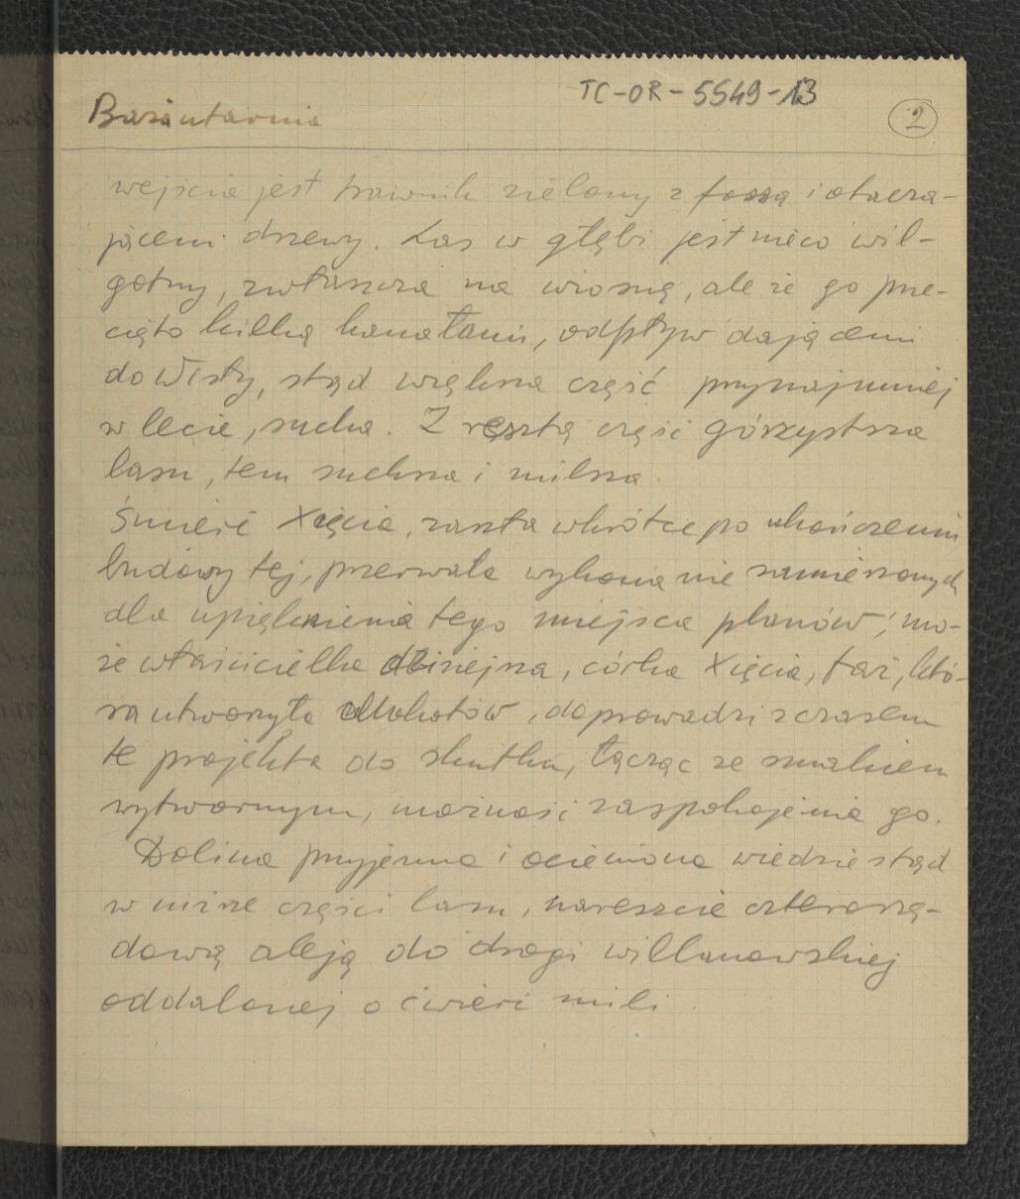 TC-OR-5549-13
Bażantarnia
2
wejścia jest trawnik zielony z fossą i otacza-
jącemi drzewy. Las w głębi jest nieco wil-
gotny, zwłaszcza na wiosnę, ale że go prze-
cięto kilką kanałami, odpływ dającemi
do Wisły, stąd większa część przynajmniej
w lecie, sucha. Z resztą część górzystsza
lasu, tem suchsza i milsza.
Śmierć Xięcia, zaszła wkrótce po ukończeniu
budowy tej, przerwała wykonanie zamierzonych
dla upięknienia tego miejsca planów; mo-
że właścicielka dzisiejsza, córka Xięcia, taż, któ-
ra utworzyła Mokotów, doprowadzi z czasem
te projekta do skutku, łącząc ze smakiem
wytwornym, możność zaspokojenia go.
Dolina przyjemna i ocieniona wiedzie stąd
w niższe części lasu, nareszcie czterorzę-
dową aleją do drogi willanowskiej
oddalonej o ćwierć mili